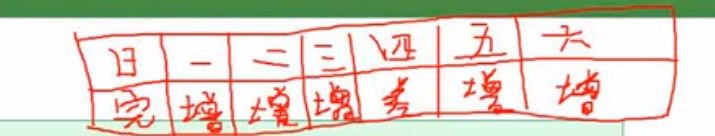 日 一 二 三 四 五 六
完 增 增 增 差 增 增